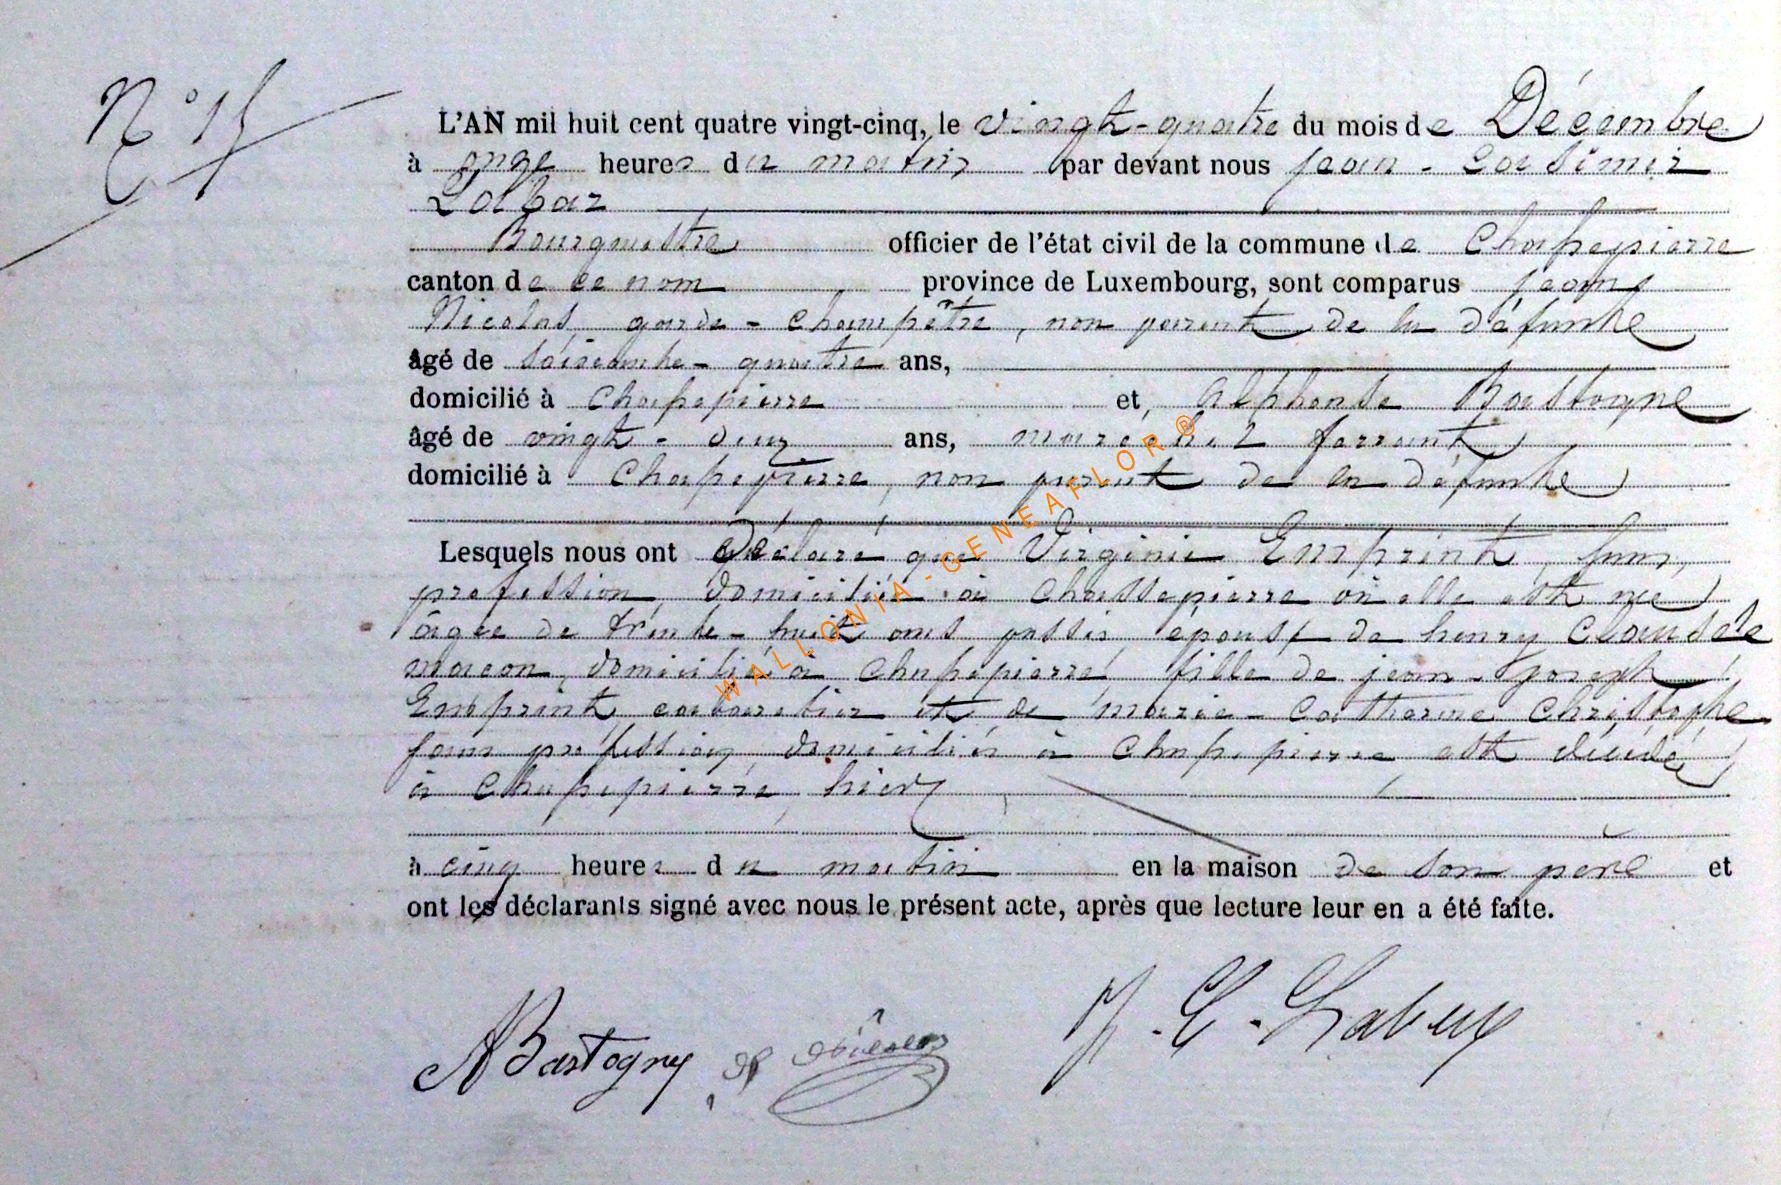 N° 15
L'AN mil huit cent quatre vingt-cinq, le vingt-quatre du mois de Décembre
à onze heures du matin par devant nous jean - Casimir
Bourgmestre officier de l'état civil de la commune de Chassepierre
canton de ce nom province de Luxembourg, sont comparus jean
Nicolas, garde - champêtre, non parent de la défunte
âgé de soixante - quatre ans,
domicilié à Chassepierre et Alphonse Bastogne
âgé de vingt - deux ans, maréchal ferrant
domicilié à Chassepierre, non parent de la défunte
Lesquels nous ont déclaré que Virginie Emprint, sans
profession, domiciliée à Chassepierre où elle est née
âgée de trente - huit ans passés, épouse de henry Clausse
maçon, domicilié à Chassepierre, fille de jean - joseph
Emprint, cabaretier et de marie - Catherine Christophe
sans profession, domiciliés à Chassepierre est décédée
à Chassepierre, hier
à cinq heures du matin en la maison de son père et
ont les déclarants signé avec nous le présent acte, après que lecture leur en a été faite.
ABastogne J. Nicolas J. C. Labar
WALLONIA-GENEAFLOR®